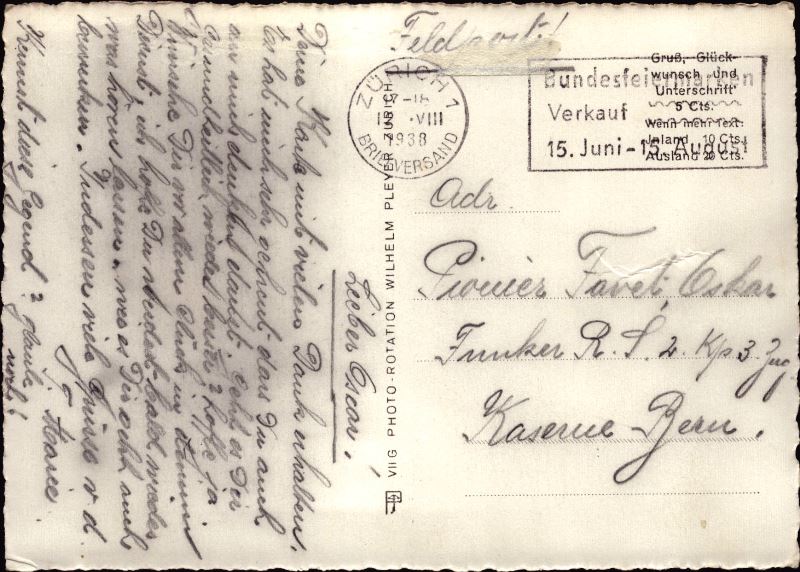 Feldpost!
ZÜRICH 1
17-18
VIII
1938
BRIEFVERSAND
Bundesfeiermarken
Verkauf
15. Juni-15. August
Gruß, Glück-
wunsch und
Unterschrift
5 Cts.
Wenn mehr Text:
Inland 10 Cts.
Ausland 20 Cts.
Adr.
Pionier Favet, Oskar
Funker R. S. 2. Kp. 3. Zug
Kaserne Bern.
VIIG PHOTO-ROTATION WILHELM PLEYER ZÜRICH
Lieber Oscar!
Deine Karte mit vielem Dank erhalten.
Es hat mich sehr gefreut dass Du auch
an mich gedacht hast. Geht es Dir
wieder besser? hoffe ja
Wünsche Dir vor allem Glück in Deinem
Dienst, ich hoffe Du wirst bald wieder
was hören lassen. wie es Dir geht auch
Indessen viele Grüsse v. d.
Kennst diese Gegend? glaube